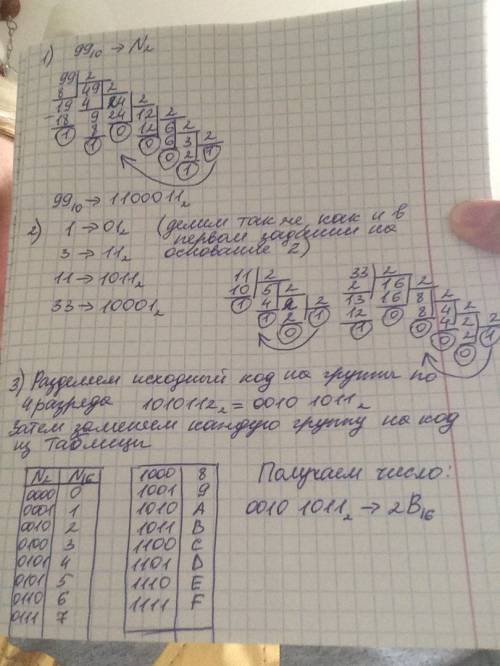 1) 99₁₀ → N₂
99 | 2
8 49 | 2
19 4 24 | 2
18 9 24 12 | 2
1 8 0 12 6 | 2
1 0 6 3 | 2
0 2 1
1
99₁₀ → 1100011₂
2) 1 → 01₂ (делим так же, как и в
3 → 11₂ первом задании на
11 → 1011₂ основание 2)
33 → 10001₂
11 | 2
10 5 | 2
1 4 2 | 2
1 2 1
0
33 | 2
2 16 | 2
13 16 8 | 2
12 0 8 4 | 2
1 0 4 2 | 2
0 2 1
0
3) Разделяем исходный код на группы по
4 разряда 1010112₂ = 0010 1011₂
Затем заменяем каждую группу на код
из таблицы
N₂ N₁₆
0000 0
0001 1
0010 2
0100 3
0101 4
0101 5
0110 6
0111 7
1000 8
1001 9
1010 A
1011 B
1100 C
1101 D
1110 E
1111 F
Получаем число:
0010 1011₂ → 2B₁₆